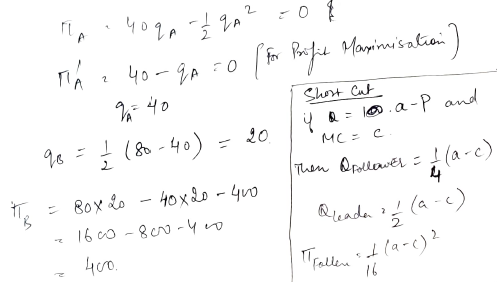 π_A = 40q_A - 1/2 q_A² = 0
π_A' = 40 - q_A = 0 [For Profit Maximisation]
q_A = 40
q_B = 1/2 (80 - 40) = 20
π_B = 80×20 - 40×20 - 400
= 1600 - 800 - 400
= 400.
Short Cut
if Q = a-P and
MC = C.
Then Q_Follower = 1/4 (a-c)
Q_leader = 1/2 (a-c)
π_Follower = 1/16 (a-c)²